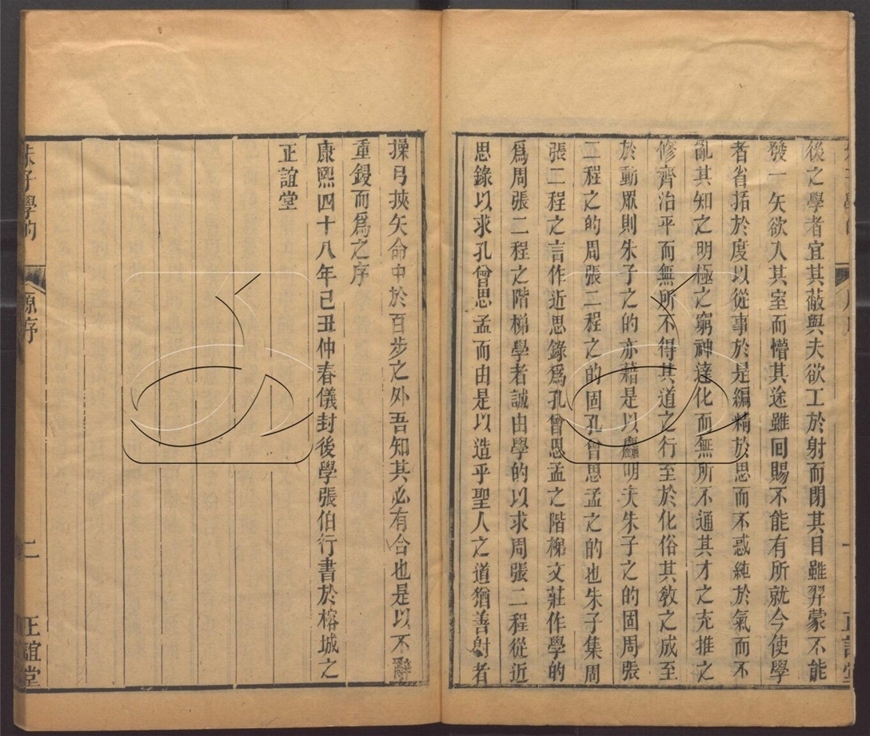 後之學者宜其蔽與夫欲工於射而閉其目雖羿蒙不能
發一矢欲入其室而懵其途雖回賜不能有所就今使學
者省括於度以從事於是編精於思而不惑純於氣而不
亂其知之明極之窮神達化而無所不通其才之充推之
修齊治平而無所不得其道之行至於化俗其教之成至
於動眾則朱子之的亦藉是以麤明夫朱子之的固周張
二程之的周張二程之的固孔曾思孟之的也朱子集周
張二程之言作近思錄爲孔曾思孟之階梯文莊作學的
爲周張二程之階梯學者誠由學的以求周張二程從近
思錄以求孔曾思孟而由是以造乎聖人之道猶善射者
操弓挾矢命中於百步之外吾知其必有合也是以不辭
重鋟而爲之序
康熙四十八年己丑仲春儀封後學張伯行書於榕城之
正誼堂
朱子學的
原序
二
正誼堂